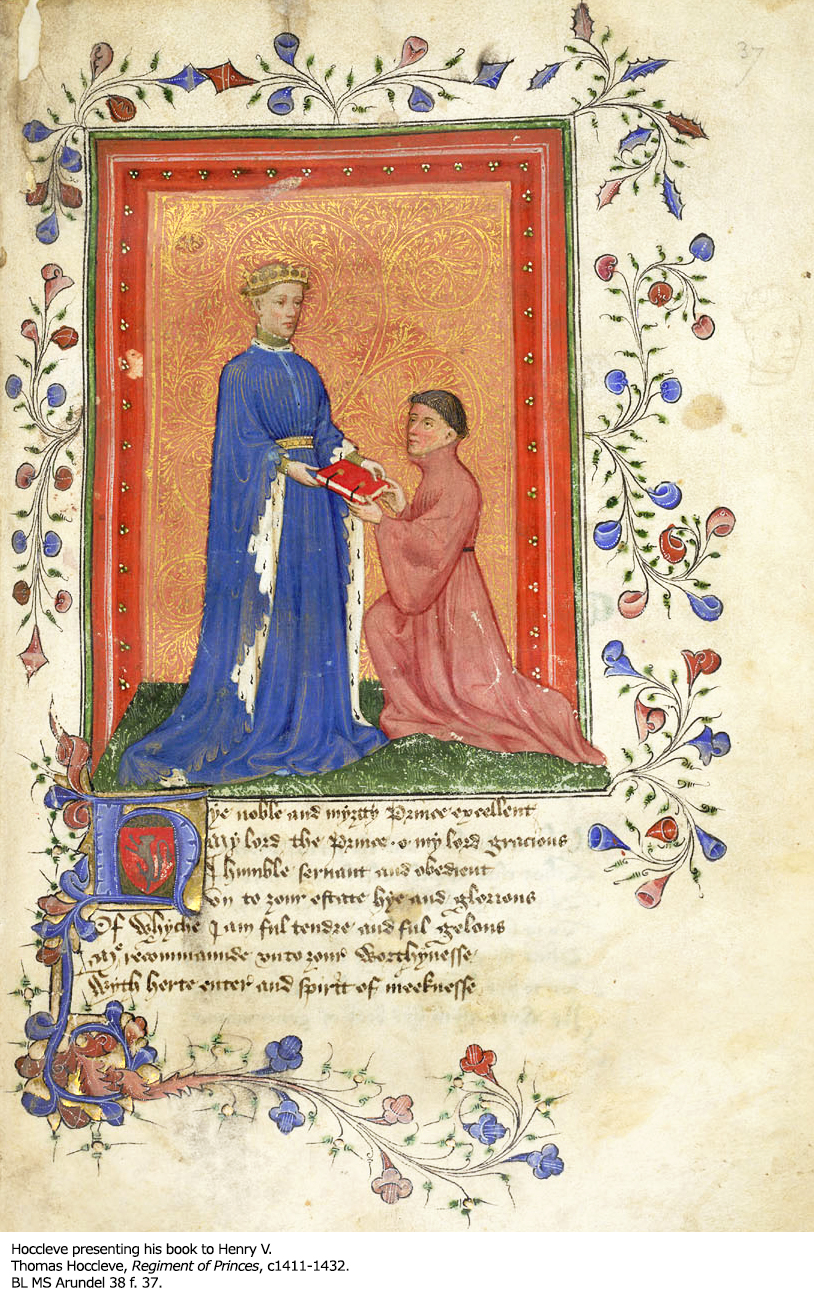 37
Hye noble and myȝty Prince excellent
My lord the Prince o my lord gracious
I humble servant and obedient
Un to ȝour estate hye and glorious
Of whyche I am ful tendre and ful gelous
Me recommaunde unto ȝour worthynesse
Wyth herte enter and spirit of meeknesse
Hoccleve presenting his book to Henry V.
Thomas Hoccleve, Regiment of Princes, c1411-1432.
BL MS Arundel 38 f. 37.